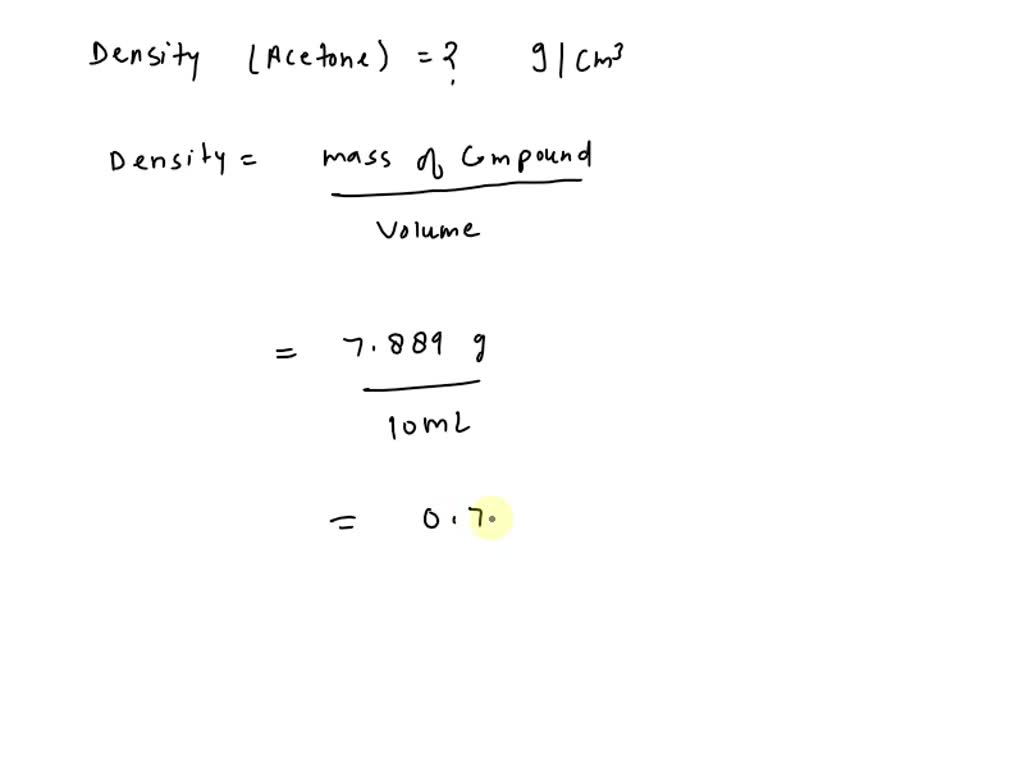 Density (Acetone) = ? g/cm³
Density = mass of Compound
Volume
= 7.889 g
10mL
= 0.7